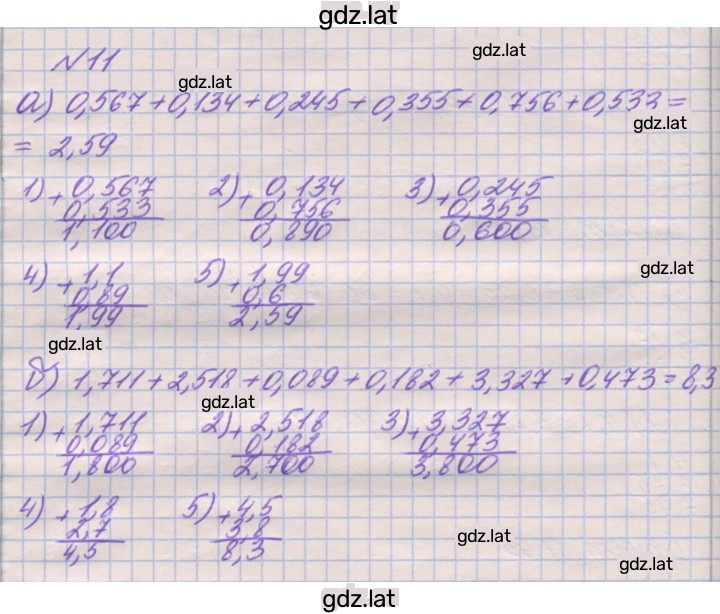 gdz.lat
gdz.lat
№11
gdz.lat
а) 0,567+0,134+0,245+0,355+0,756+0,533=
gdz.lat
= 2,59
1) + 0,567 2) + 0,134 3) + 0,245
0,533 0,756 0,355
1,100 0,890 0,600
gdz.lat
4) + 1,1 5) + 1,99
0,89 0,6
1,99 2,59
gdz.lat
б) 1,711+2,518+0,089+0,182+3,327+0,473=8,3
gdz.lat
1) + 1,711 2) + 2,518 3) + 3,327
0,089 0,182 0,473
1,800 2,700 3,800
4) + 1,8 5) + 4,5
2,7 3,8
4,5 8,3
gdz.lat
gdz.lat
gdz.lat